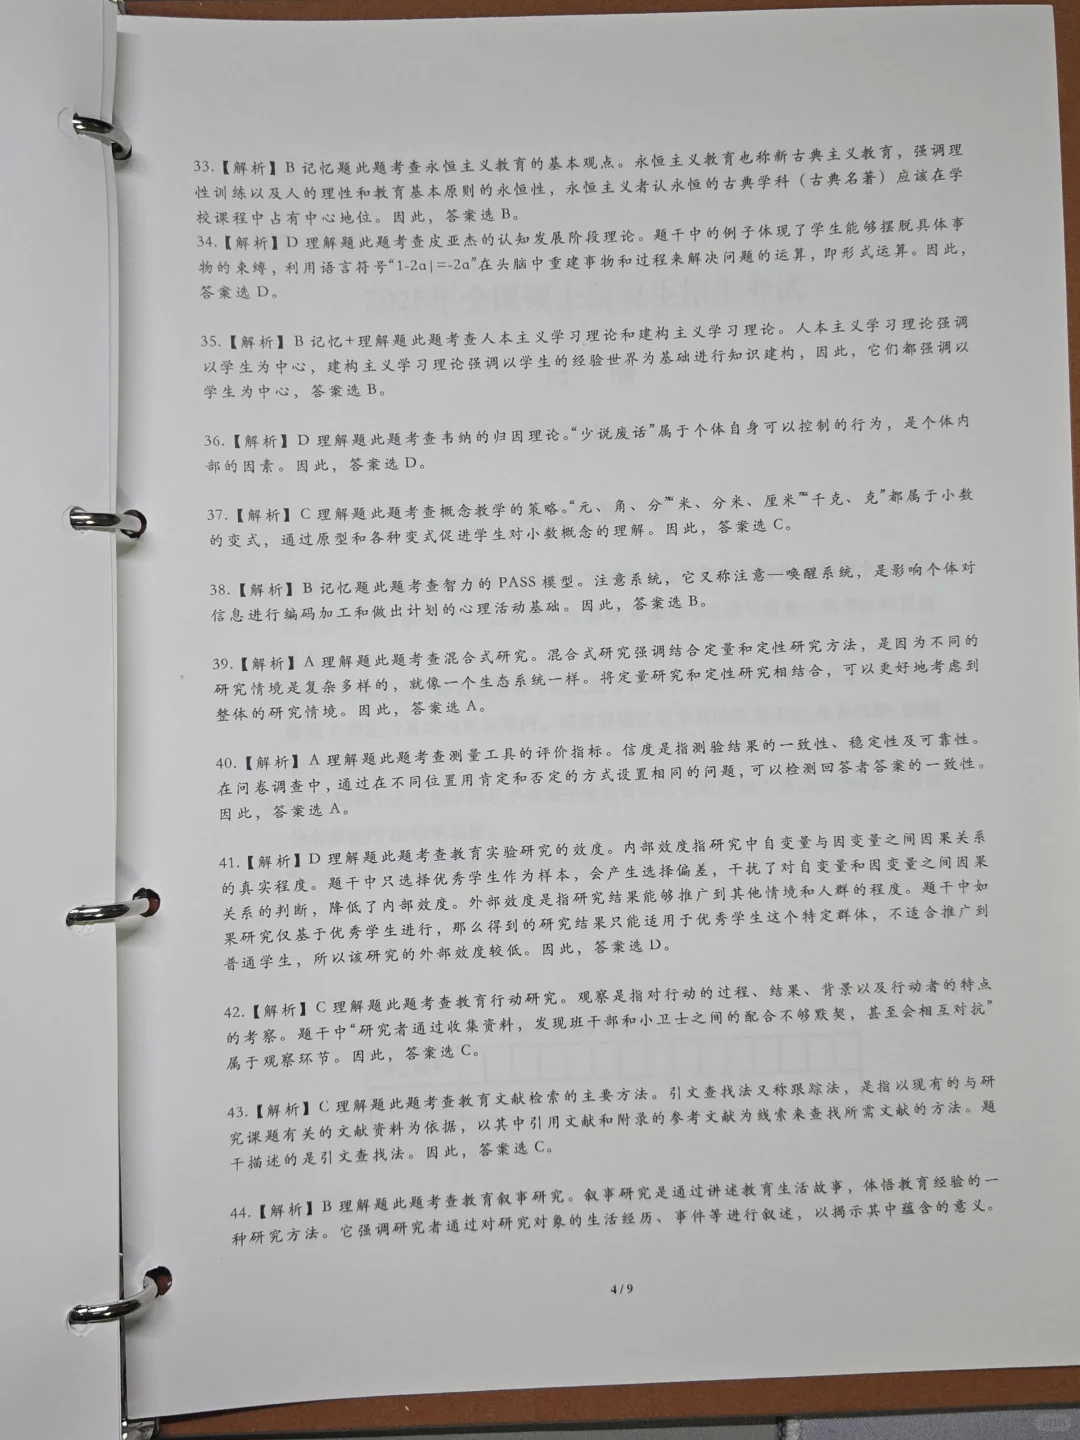 33.【解析】B 记忆题此题考查永恒主义教育的基本观点。永恒主义教育也称新古典主义教育，强调理
性训练以及人的理性和教育基本原则的永恒性，永恒主义者认永恒的古典学科（古典名著）应该在学
校课程中占有中心地位。因此，答案选 B。
34.【解析】D 理解题此题考查皮亚杰的认知发展阶段理论。题干中的例子体现了学生能够摆脱具体事
物的束缚，利用语言符号“1-2a|=-2a”在头脑中重建事物和过程来解决问题的运算，即形式运算。因此，
答案选 D。
35.【解析】B 记忆+理解题此题考查人本主义学习理论和建构主义学习理论。人本主义学习理论强调
以学生为中心，建构主义学习理论强调以学生的经验世界为基础进行知识建构，因此，它们都强调以
学生为中心，答案选 B。
36.【解析】D 理解题此题考查韦纳的归因理论。“少说废话”属于个体自身可以控制的行为，是个体内
部的因素。因此，答案选 D。
37.【解析】C 理解题此题考查概念教学的策略。“元、角、分”“米、分米、厘米”“千克、克”都属于小数
的变式，通过原型和各种变式促进学生对小数概念的理解。因此，答案选 C。
38.【解析】B 记忆题此题考查智力的 PASS 模型。注意系统，它又称注意—唤醒系统，是影响个体对
信息进行编码加工和做出计划的心理活动基础。因此，答案选 B。
39.【解析】A 理解题此题考查混合式研究。混合式研究强调结合定量和定性研究方法，是因为不同的
研究情境是复杂多样的，就像一个生态系统一样。将定量研究和定性研究相结合，可以更好地考虑到
整体的研究情境。因此，答案选 A。
40.【解析】A 理解题此题考查测量工具的评价指标。信度是指测验结果的一致性、稳定性及可靠性。
在问卷调查中，通过在不同位置用肯定和否定的方式设置相同的问题，可以检测回答者答案的一致性。
因此，答案选 A。
41.【解析】D 理解题此题考查教育实验研究的效度。内部效度指研究中自变量与因变量之间因果关系
的真实程度。题干中只选择优秀学生作为样本，会产生选择偏差，干扰了对自变量和因变量之间因果
关系的判断，降低了内部效度。外部效度是指研究结果能够推广到其他情境和人群的程度。题干中如
果研究仅基于优秀学生进行，那么得到的研究结果只能适用于优秀学生这个特定群体，不适合推广到
普通学生，所以该研究的外部效度较低。因此，答案选 D。
42.【解析】C 理解题此题考查教育行动研究。观察是指对行动的过程、结果、背景以及行动者的特点
的考察。题干中“研究者通过收集资料，发现班干部和小卫士之间的配合不够默契，甚至会相互对抗”
属于观察环节。因此，答案选 C。
43.【解析】C 理解题此题考查教育文献检索的主要方法。引文查找法又称跟踪法，是指以现有的与研
究课题有关的文献资料为依据，以其中引用文献和附录的参考文献为线索来查找所需文献的方法。题
干描述的是引文查找法。因此，答案选 C。
44.【解析】B 理解题此题考查教育叙事研究。叙事研究是通过讲述教育生活故事，体悟教育经验的一
种研究方法。它强调研究者通过对研究对象的生活经历、事件等进行叙述，以揭示其中蕴含的意义。
4 / 9